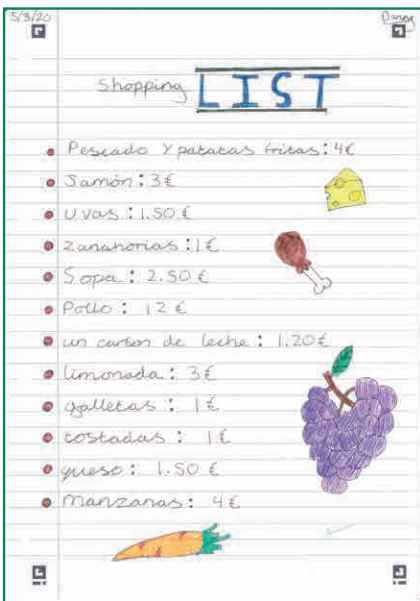 5/3/20
Shopping LIST
Pescado y patatas fritas: 4€
Jamón: 3€
uvas: 1.50€
zanahorias: 1€
Sopa: 2.50€
Pollo: 12€
un carton de leche: 1.20€
limonada: 3€
galletas: 1€
tostadas: 1€
queso: 1.50€
manzanas: 4€